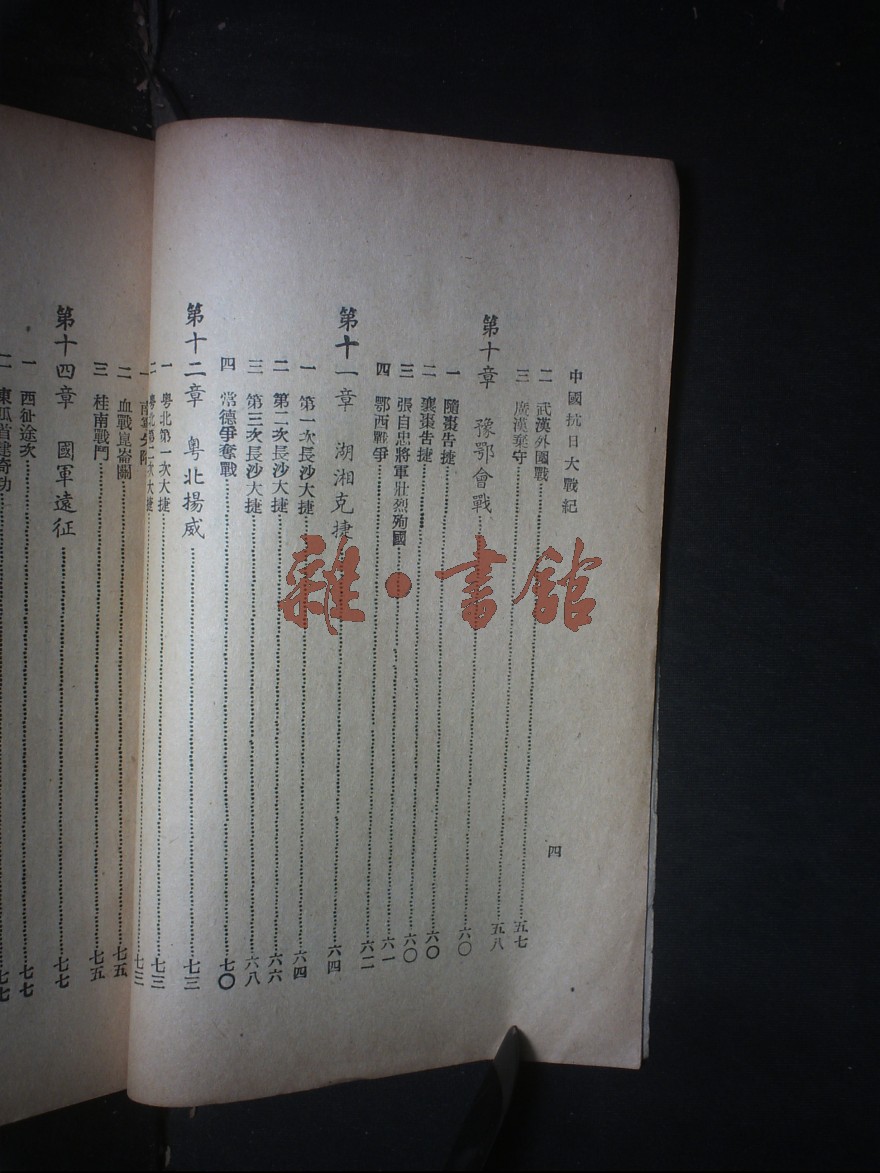 中國抗日大戰紀
四
二 武漢外圍戰 五七
三 廣漢棄守 五八
第十章 豫鄂會戰 六〇
一 隨棗告捷 六〇
二 襄棗告捷 六〇
三 張自忠將軍壯烈殉國 六一
四 鄂西戰爭 六二
第十一章 湖湘克捷 六四
一 第一次長沙大捷 六四
二 第二次長沙大捷 六六
三 第三次長沙大捷 六八
四 常德爭奪戰 七〇
第十二章 粵北揚威 七三
一 粵北第一次大捷 七三
二 粵北第二次大捷
二 血戰崑崙關 七五
三 桂南戰鬥 七五
第十四章 國軍遠征 七七
一 西征途次 七七
二 東瓜首建奇功 七七
雜·書館